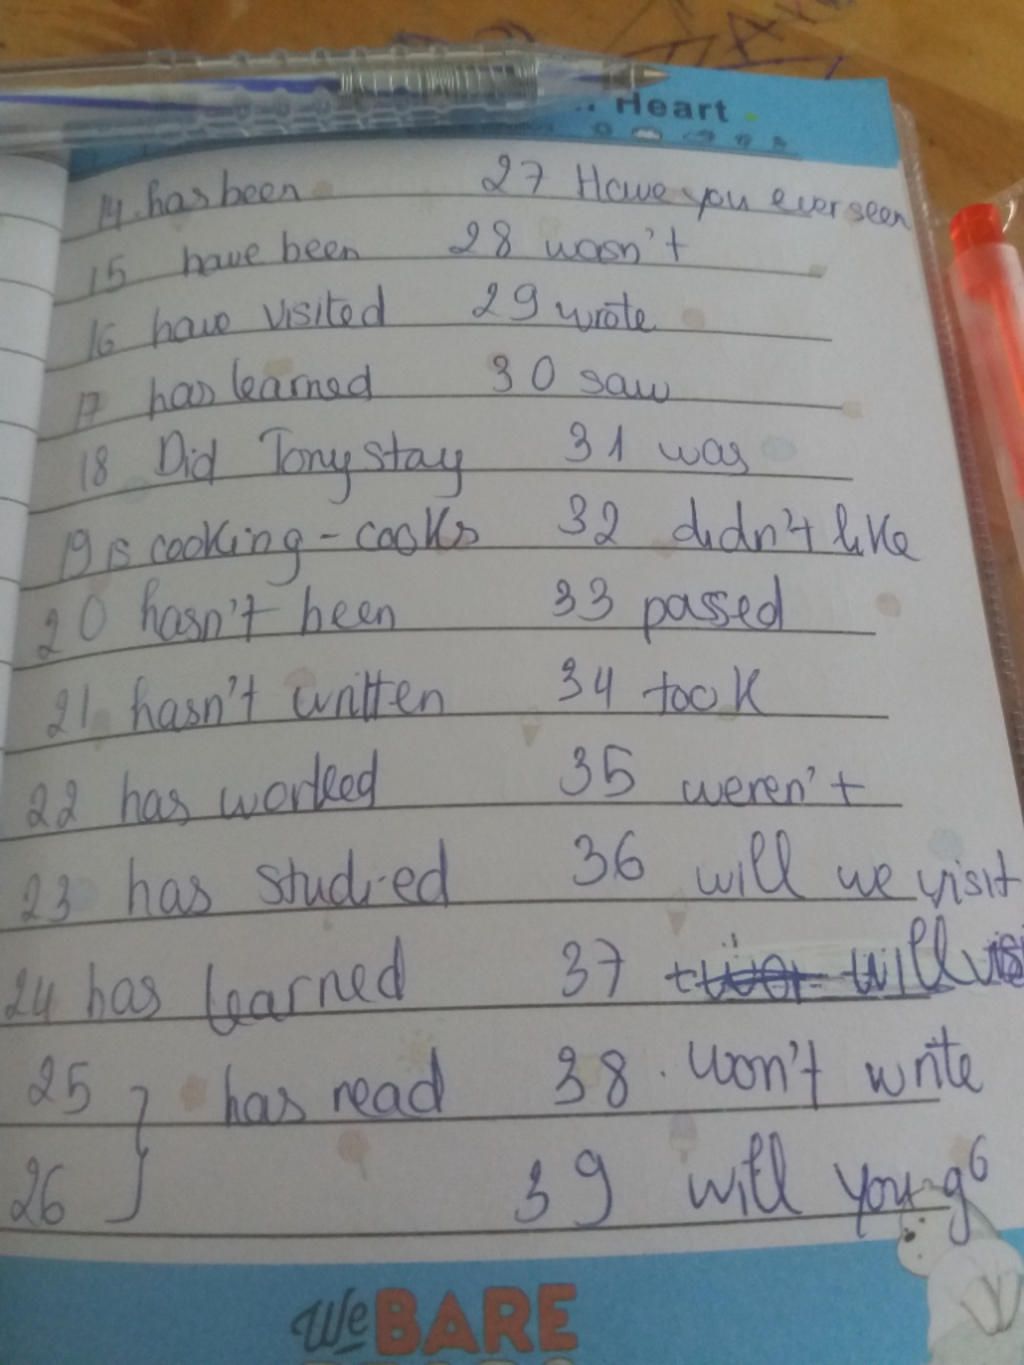 Heart
14. has been
15 have been
16 have visited
17 has learned
18 Did Tony stay
19 is cooking - cooks
20 hasn't been
21 hasn't written
22 has worked
23 has studied
24 has learned
25
26 } has read
27 Have you ever seen
28 wasn't
29 wrote
30 saw
31 was
32 didn't like
33 passed
34 took
35 weren't
36 will we visit
37 will
38. won't write
39 will you go
We BARE